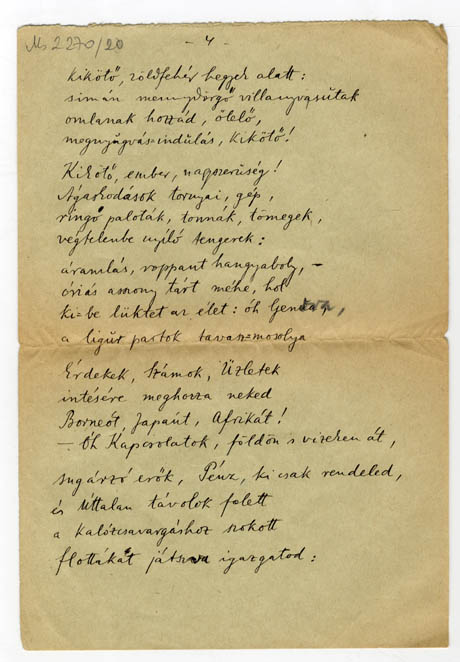 Ms 2270/20
- 4 -
kikötő, zöldfehér hegyek alatt:
simán mennydörgő villanyvasutak
omlanak hozzád, ölelő,
megnyugvás-indulás, kikötő!
Kikötő, ember, nagyszerűség!
Ágaskodások tornyai, gép,
ringó paloták, tonnák, tömegek,
végtelenbe nyíló tengerek:
áramlás, roppant hangyaboly, –
óriás asszony tárt méhe, hol
ki-be lüktet az élet: óh Genova,
a ligúr partok tavasz-mosolya
Érdekek, Számok, Üzletek
intésére meghozza neked
Borneót, Japánt, Afrikát!
– Óh Kapcsolatok, földön s vizeken át,
sugárzó erők, Pénz, ki csak rendeled,
és Úttalan távolok felett
a kalózcsavargáshoz szokott
flottákat játszva igazgatod: